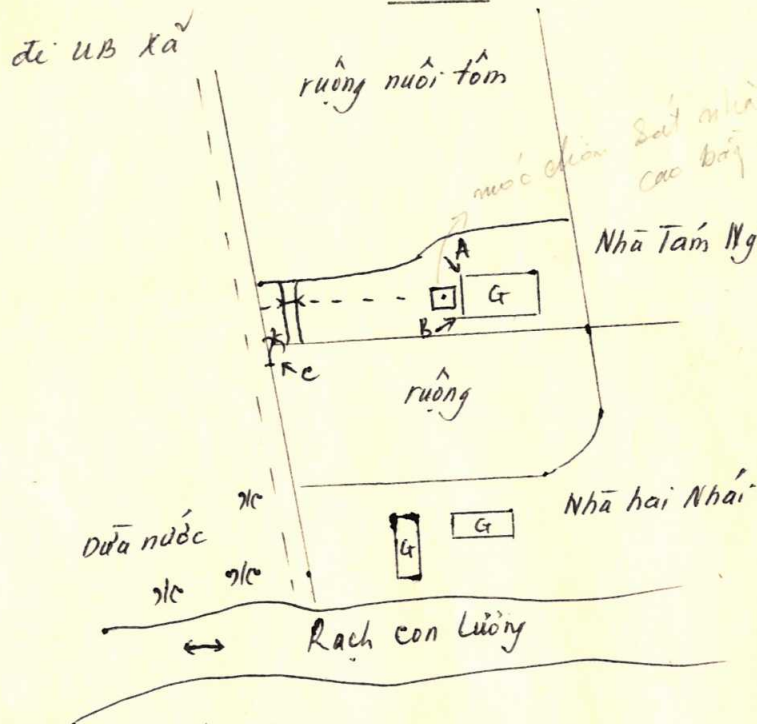 đi UB Xã
ruộng nuôi tôm
mốc
sát nhà
cao bằng
Nhà Tám Ng
A
G
B
C
ruộng
Nhà hai Nhái
G
G
Dừa nước
Rạch con Lưỡng